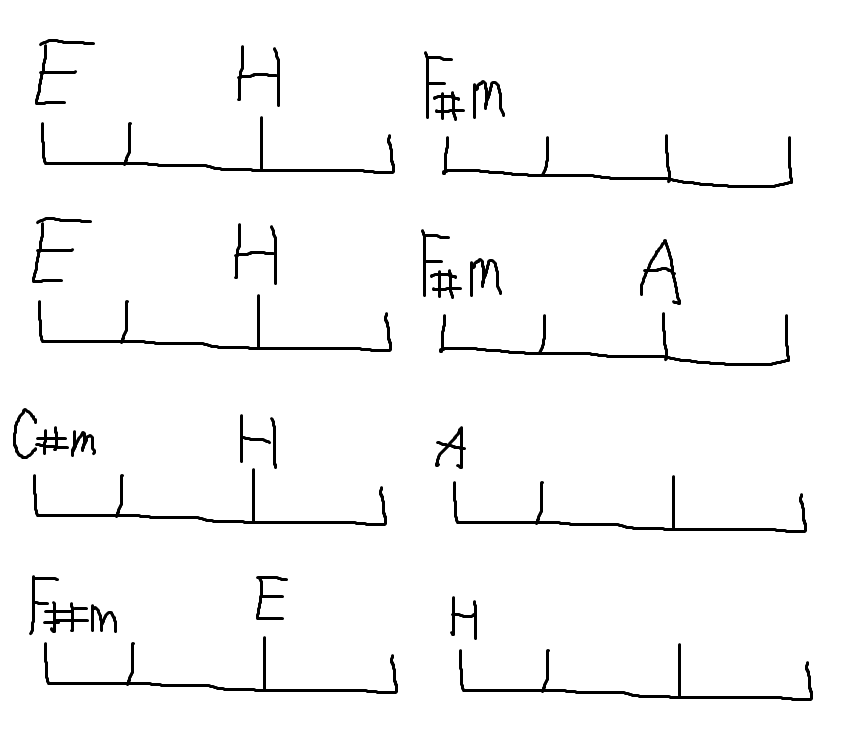 E H F#m
E H F#m A
C#m H A
F##m E H